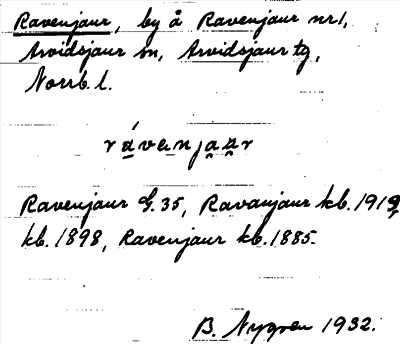 Ravenjaur, by å Ravenjaur nr 1,
Arvidsjaur sn, Arvidsjaur tg,
Norrb. l.
rávanjaar
Ravenjaur G. 35, Ravanjaur kb. 1919,
kb. 1898, Ravenjaur kb. 1885.
B. Nygren 1932.